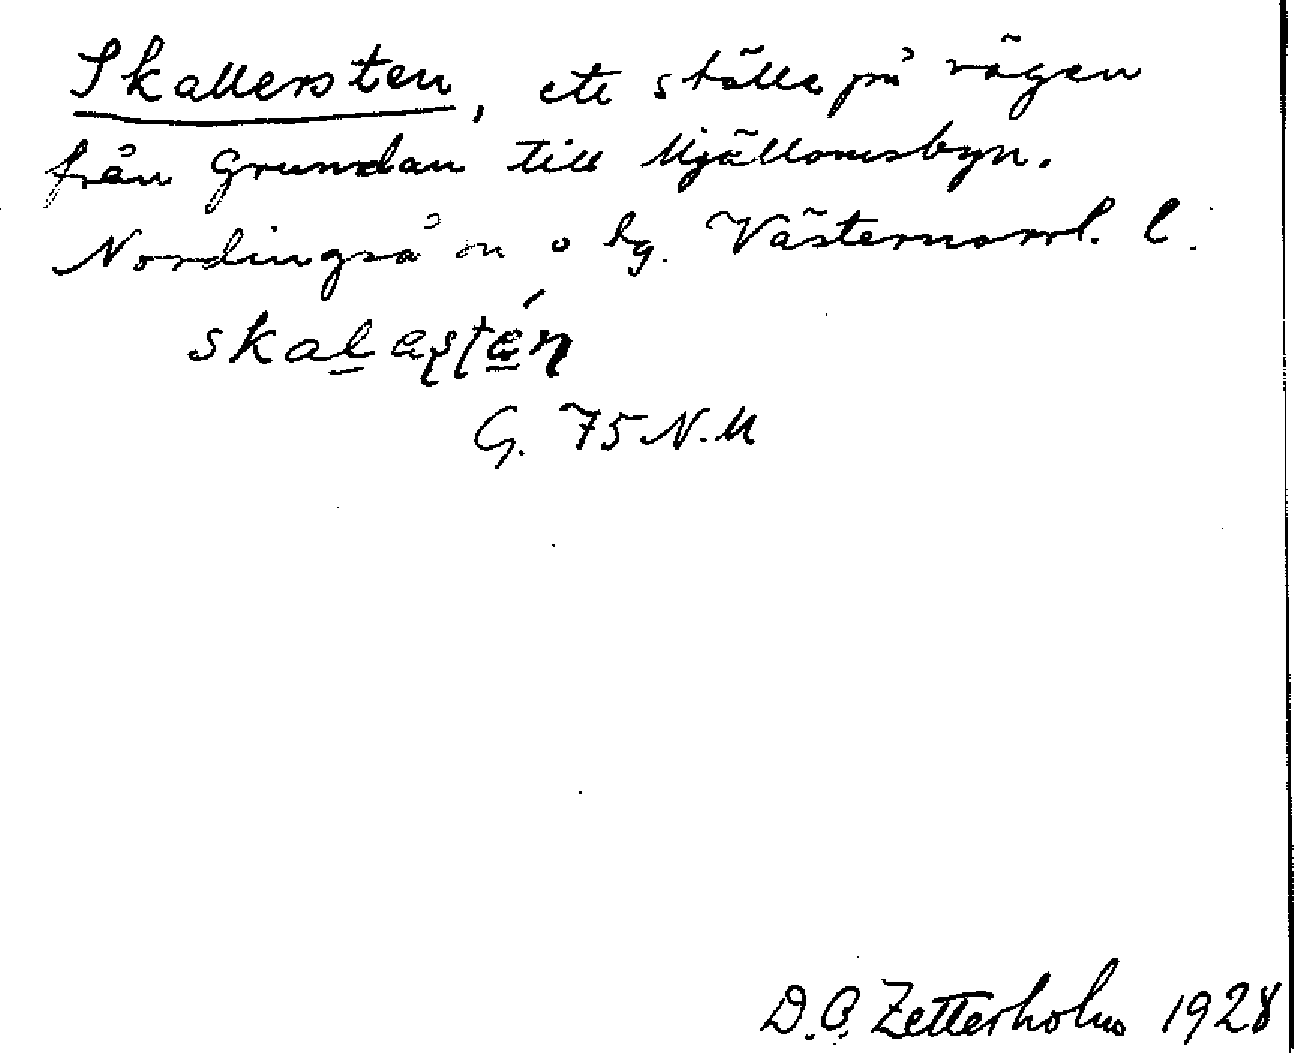 Skallersten, ett ställe på vägen
från Grundan till Mjällomsbyn.
Nordingrå sn o hg. Västernorrl. l.
skal̲aʂʈé̲ɳ
G. 75 N.M
D.O. Zetterholm 1928